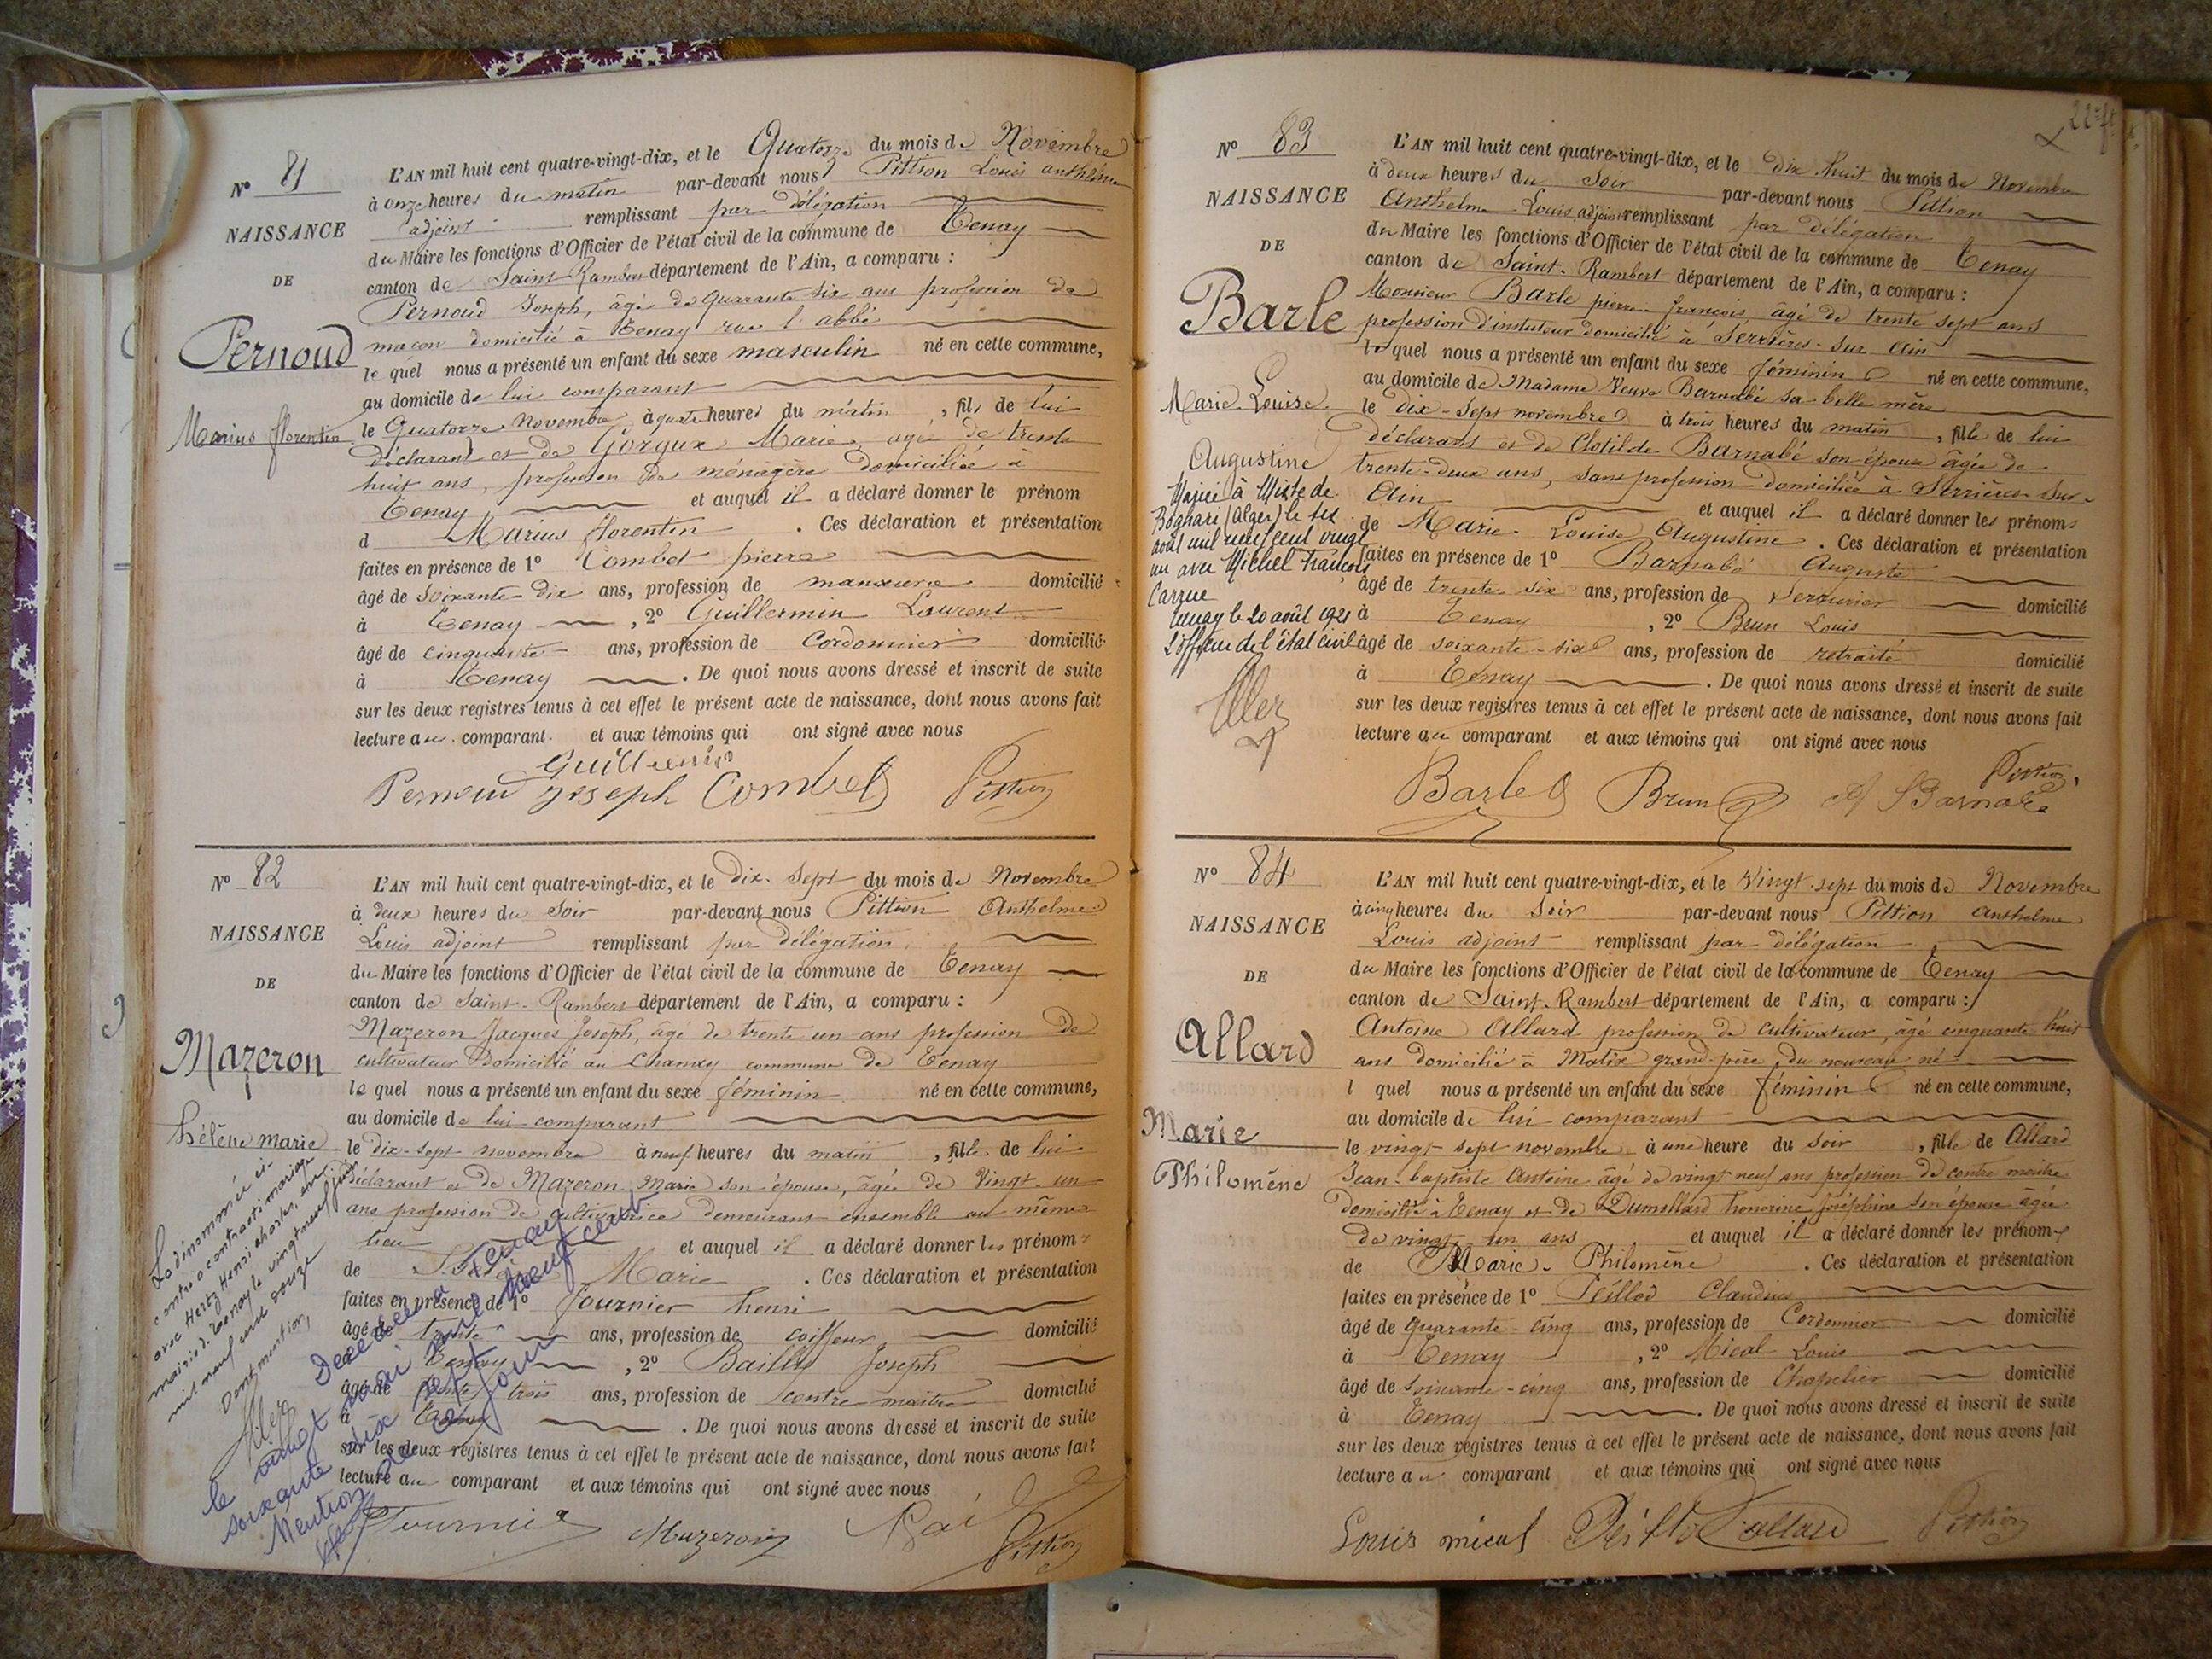 N° 81
NAISSANCE
DE
Pernoud
Marius florentin
L'AN mil huit cent quatre-vingt-dix, et le Quatorze du mois de Novembre
à onze heures du matin par-devant nous Pittion Louis anthelme
adjoint remplissant par délégation
du Maire les fonctions d'Officier de l'état civil de la commune de Tenay
canton de Saint Rambert département de l'Ain, a comparu :
Pernoud Joseph, âgé de quarante six ans profession de
maçon domicilié à Tenay rue l'abbé
le quel nous a présenté un enfant du sexe masculin né en cette commune,
au domicile de lui comparant
le Quatorze Novembre à quatre heures du matin , fils de lui
déclarant et de Gorgux Marie, agée de trente
huit ans, profession de ménagère domiciliée à
Tenay et auquel il a déclaré donner le prénom
d Marius florentin . Ces déclaration et présentation
faites en présence de 1° Combet pierre
âgé de soixante-dix ans, profession de domicilié
à Tenay , 2° Guillermin Laurent
âgé de cinquante ans, profession de Cordonnier domicilié
à Tenay . De quoi nous avons dressé et inscrit de suite
sur les deux registres tenus à cet effet le présent acte de naissance, dont nous avons fait
lecture au comparant et aux témoins qui ont signé avec nous
Guillermin
Pernoud Joseph Combet Pittion
N° 82
NAISSANCE
DE
Mazeron
hélène marie
La dénommée ci-
contre a contracté mariage
avec Hertz Henri charles, en
mairie de Tenay le vingt neuf juin
mil neuf cent douze
Dont mention,
L'AN mil huit cent quatre-vingt-dix, et le dix-sept du mois de Novembre
à deux heures du soir par-devant nous Pittion Anthelme
Louis adjoint remplissant par délégation
du Maire les fonctions d'Officier de l'état civil de la commune de Tenay
canton de Saint-Rambert département de l'Ain, a comparu :
Mazeron Jacques Joseph, âgé de trente un ans profession de
cultivateur domicilié au Chanay commune de Tenay
le quel nous a présenté un enfant du sexe féminin né en cette commune,
au domicile de lui comparant
le dix-sept novembre à neuf heures du matin , fille de lui
déclarant et de Mazeron Marie son épouse, âgée de Vingt-un
ans profession de cultivatrice demeurant ensemble au même
lieu et auquel il a déclaré donner les prénoms
de Marie . Ces déclaration et présentation
faites en présence de 1° Fournier henri
âgé de trente ans, profession de coiffeur domicilié
à Tenay , 2° Bailly Joseph
âgé de trente trois ans, profession de contre maître domicilié
à Tenay . De quoi nous avons dressé et inscrit de suite
sur les deux registres tenus à cet effet le présent acte de naissance, dont nous avons fait
lecture au comparant et aux témoins qui ont signé avec nous
Décédée à Tenay
le vingt mai mil neuf cent
soixante dix sept
Mention de ce jour
Fournier Mazeron Pittion
N° 83
NAISSANCE
DE
Barle
Marie-Louise
Augustine
Mariée à Mixte de
Boghari (Alger) le six
août mil neuf cent vingt
un avec Michel François
Carrue
Tenay le 20 août 1921
L'officier de l'état civil
L'AN mil huit cent quatre-vingt-dix, et le dix huit du mois de Novembre
à deux heures du Soir par-devant nous Pittion
Anthelme Louis adjoint remplissant par délégation
du Maire les fonctions d'Officier de l'état civil de la commune de Tenay
canton de Saint-Rambert département de l'Ain, a comparu :
Monsieur Barle pierre françois, âgé de trente sept ans
profession d'instituteur domicilié à Serrières-sur Ain
le quel nous a présenté un enfant du sexe féminin né en cette commune,
au domicile de Madame Veuve Barnabé sa belle mère
le dix-sept novembre à trois heures du matin , fille de lui
déclarant et de Clotilde Barnabé son épouse âgée de
trente-deux ans, sans profession domiciliée à Serrières-sur-
Ain et auquel il a déclaré donner les prénoms
de Marie Louise Augustine . Ces déclaration et présentation
faites en présence de 1° Barnabé Auguste
âgé de trente six ans, profession de Serrurier domicilié
à Tenay , 2° Brun Louis
âgé de soixante-six ans, profession de retraité domicilié
à Tenay . De quoi nous avons dressé et inscrit de suite
sur les deux registres tenus à cet effet le présent acte de naissance, dont nous avons fait
lecture au comparant et aux témoins qui ont signé avec nous
Barle Brun A Barnabé Pittion
N° 84
NAISSANCE
DE
Allard
Marie
Philomène
L'AN mil huit cent quatre-vingt-dix, et le Vingt-sept du mois de Novembre
à cinq heures du Soir par-devant nous Pittion anthelme
Louis adjoint remplissant par délégation
du Maire les fonctions d'Officier de l'état civil de la commune de Tenay
canton de Saint-Rambert département de l'Ain, a comparu :
Antoine Allard profession de cultivateur, âgé cinquante huit
ans domicilié à Malix grand-père du nouveau né
l quel nous a présenté un enfant du sexe féminin né en cette commune,
au domicile de lui comparant
le vingt-sept novembre à une heure du soir , fille de Allard
Jean-baptiste Antoine âgé de vingt neuf ans profession de contre maître
domicilié à Tenay et de Dumollard honorine Joséphine son épouse âgée
de vingt-un ans et auquel il a déclaré donner les prénoms
de Marie-Philomène . Ces déclaration et présentation
faites en présence de 1° Peillod Claudius
âgé de Quarante-cinq ans, profession de Cordonnier domicilié
à Tenay , 2° Micol Louis
âgé de Soixante-cinq ans, profession de Chapelier domicilié
à Tenay . De quoi nous avons dressé et inscrit de suite
sur les deux registres tenus à cet effet le présent acte de naissance, dont nous avons fait
lecture au comparant et aux témoins qui ont signé avec nous
Louis micol Peillod allard Pittion